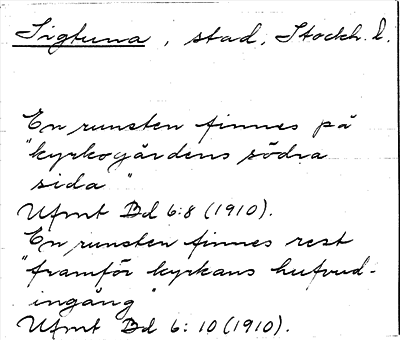 Sigtuna, stad, Stockh. l.
En runsten finnes på
"kyrkogårdens södra
sida"
Ufmt Bd 6:8 (1910).
En runsten finnes rest
"framför kyrkans hufvud-
ingång"
Ufmt Bd 6: 10 (1910).